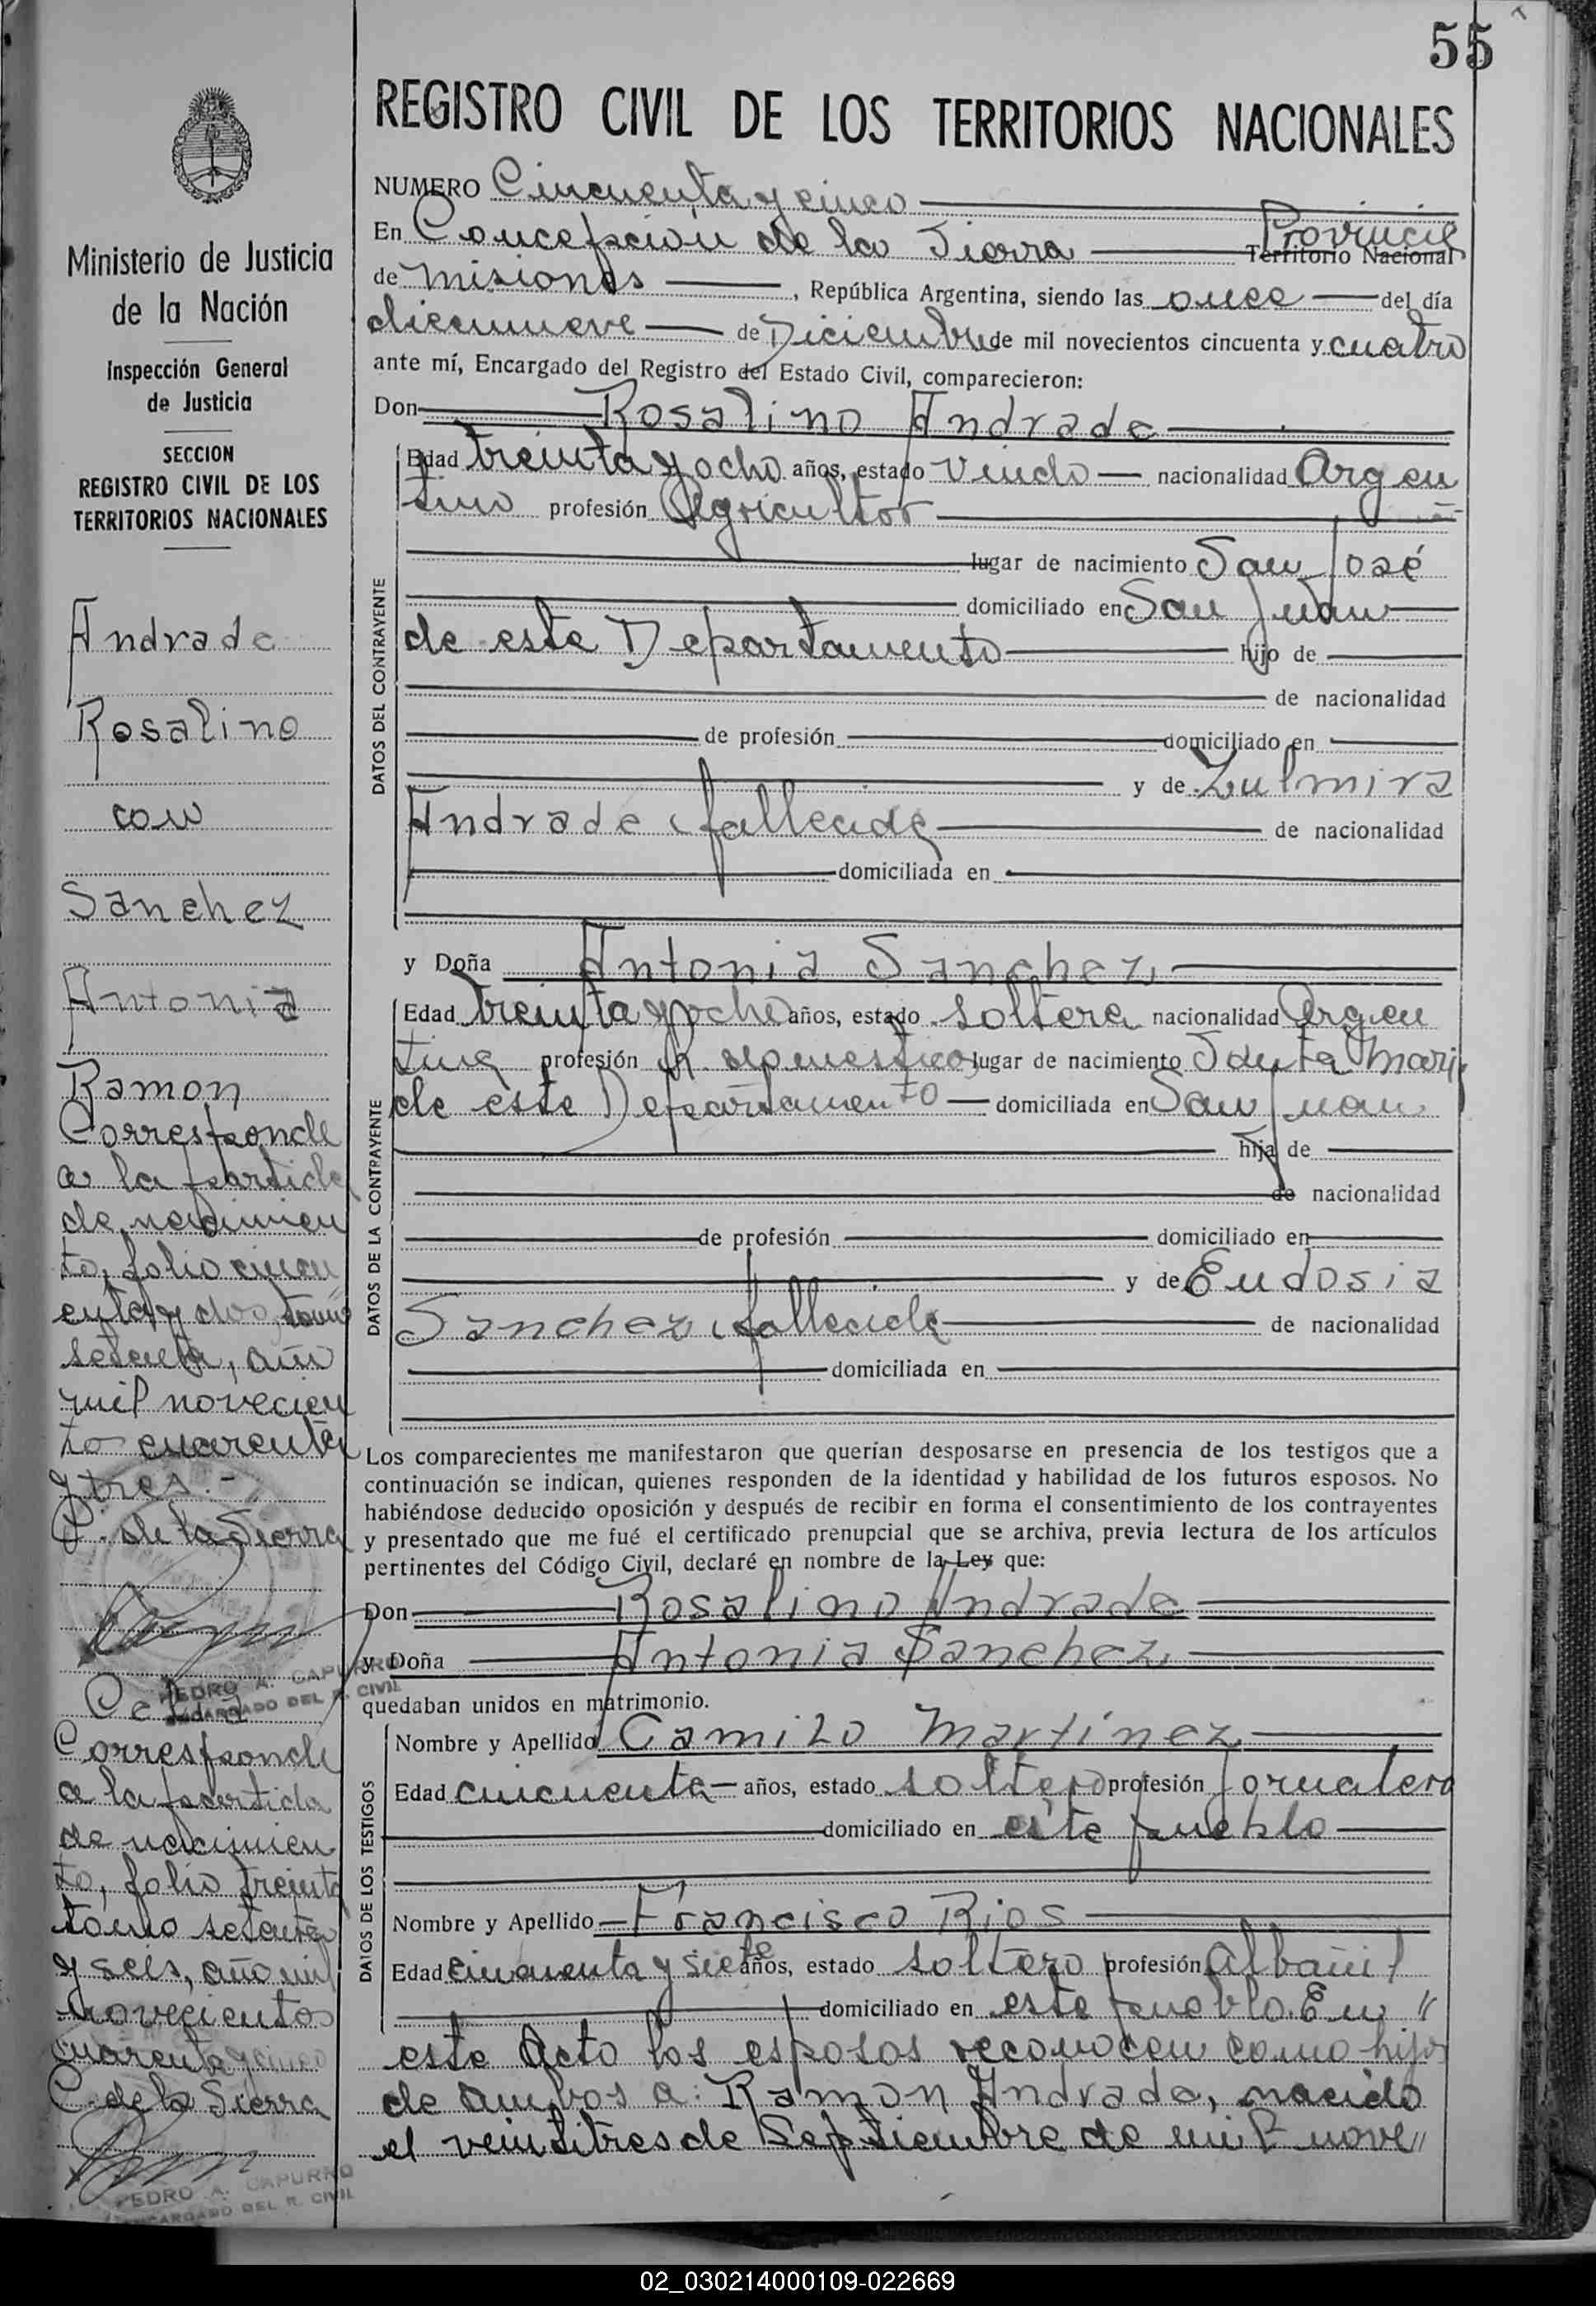 55
REGISTRO CIVIL DE LOS TERRITORIOS NACIONALES
Ministerio de Justicia
de la Nación
Inspección General
de Justicia
SECCION
REGISTRO CIVIL DE LOS
TERRITORIOS NACIONALES
Andrade
Rosalino
con
Sanchez
Antonia
Ramon
Corresponde
a la partida
de nacimien
to, folio cincu
enta y dos, tomo
setenta, año
mil novecien
to cuarenta
y tres.-
C. de la Sierra
PEDRO A. CAPURRO
ENCARGADO DEL R. CIVIL
Corresponde
a la partida
de nacimien
to, folio treinta
tomo setenta
y seis, año mil
novecientos
cuarenta y cinco
C. de la Sierra
PEDRO A. CAPURRO
ENCARGADO DEL R. CIVIL
NUMERO Cincuenta y cinco
En Concepción de la Sierra Provincia Territorio Nacional
de Misiones, República Argentina, siendo las once del día
diecinueve de Diciembre de mil novecientos cincuenta y cuatro
ante mí, Encargado del Registro del Estado Civil, comparecieron:
Don Rosalino Andrade
DATOS DEL CONTRAYENTE
Edad treinta y ocho años, estado viudo nacionalidad Argen
tino profesión Agricultor
lugar de nacimiento San José
domiciliado en San Juan
de este Departamento hijo de
de nacionalidad
de profesión domiciliado en
y de Zulmira
Andrade fallecida de nacionalidad
domiciliada en
y Doña Antonia Sanchez
DATOS DE LA CONTRAYENTE
Edad treinta y ocho años, estado soltera nacionalidad Argen
tina profesión Q. domesticos lugar de nacimiento Santa Maria
de este Departamento domiciliada en San Juan
hija de
de nacionalidad
de profesión domiciliado en
y de Eudosia
Sanchez fallecida de nacionalidad
domiciliada en
Los comparecientes me manifestaron que querían desposarse en presencia de los testigos que a
continuación se indican, quienes responden de la identidad y habilidad de los futuros esposos. No
habiéndose deducido oposición y después de recibir en forma el consentimiento de los contrayentes
y presentado que me fué el certificado prenupcial que se archiva, previa lectura de los artículos
pertinentes del Código Civil, declaré en nombre de la Ley que:
Don Rosalino Andrade
y Doña Antonia Sanchez
quedaban unidos en matrimonio.
DATOS DE LOS TESTIGOS
Nombre y Apellido Camilo Martinez
Edad cincuenta años, estado soltero profesión Jornalero
domiciliado en este pueblo
Nombre y Apellido Francisco Rios
Edad cincuenta y siete años, estado soltero profesión Albañil
domiciliado en este pueblo. En "
este Acto los esposos reconocen como hijos
de ambos a: Ramon Andrade, nacido
el veintitres de Septiembre de mil nove"
02_030214000109-022669